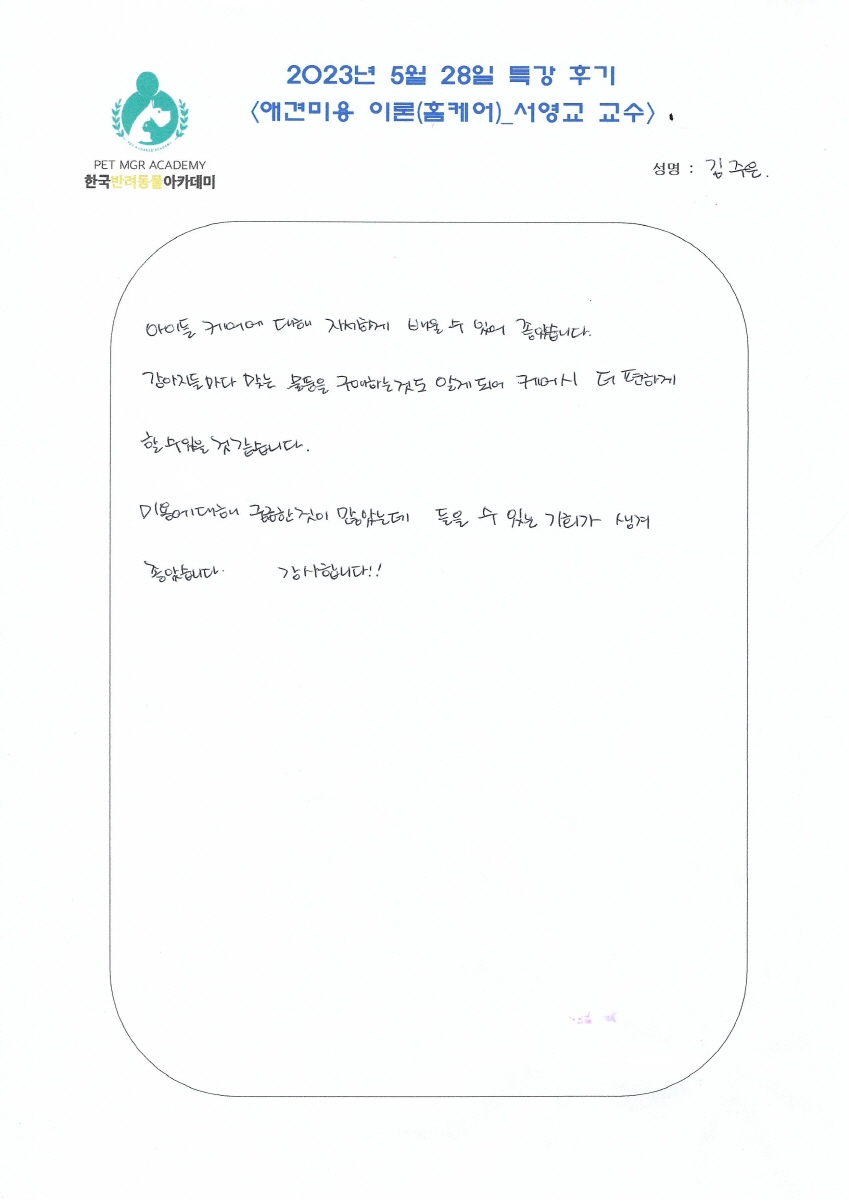 2023년 5월 28일 특강 후기
<애견미용 이론(홈케어)_서영교 교수>
PET MGR ACADEMY
한국반려동물아카데미
성명 : 김주은.
아이들 케어에 대해 자세하게 배울 수 있어 좋았습니다.
강아지들마다 맞는 물품을 구매하는것도 알게되어 케어시 더 편하게
할 수있을 것 같습니다.
미용에대해 궁금한것이 많았는데 들을 수 있는 기회가 생겨
좋았습니다. 감사합니다!!